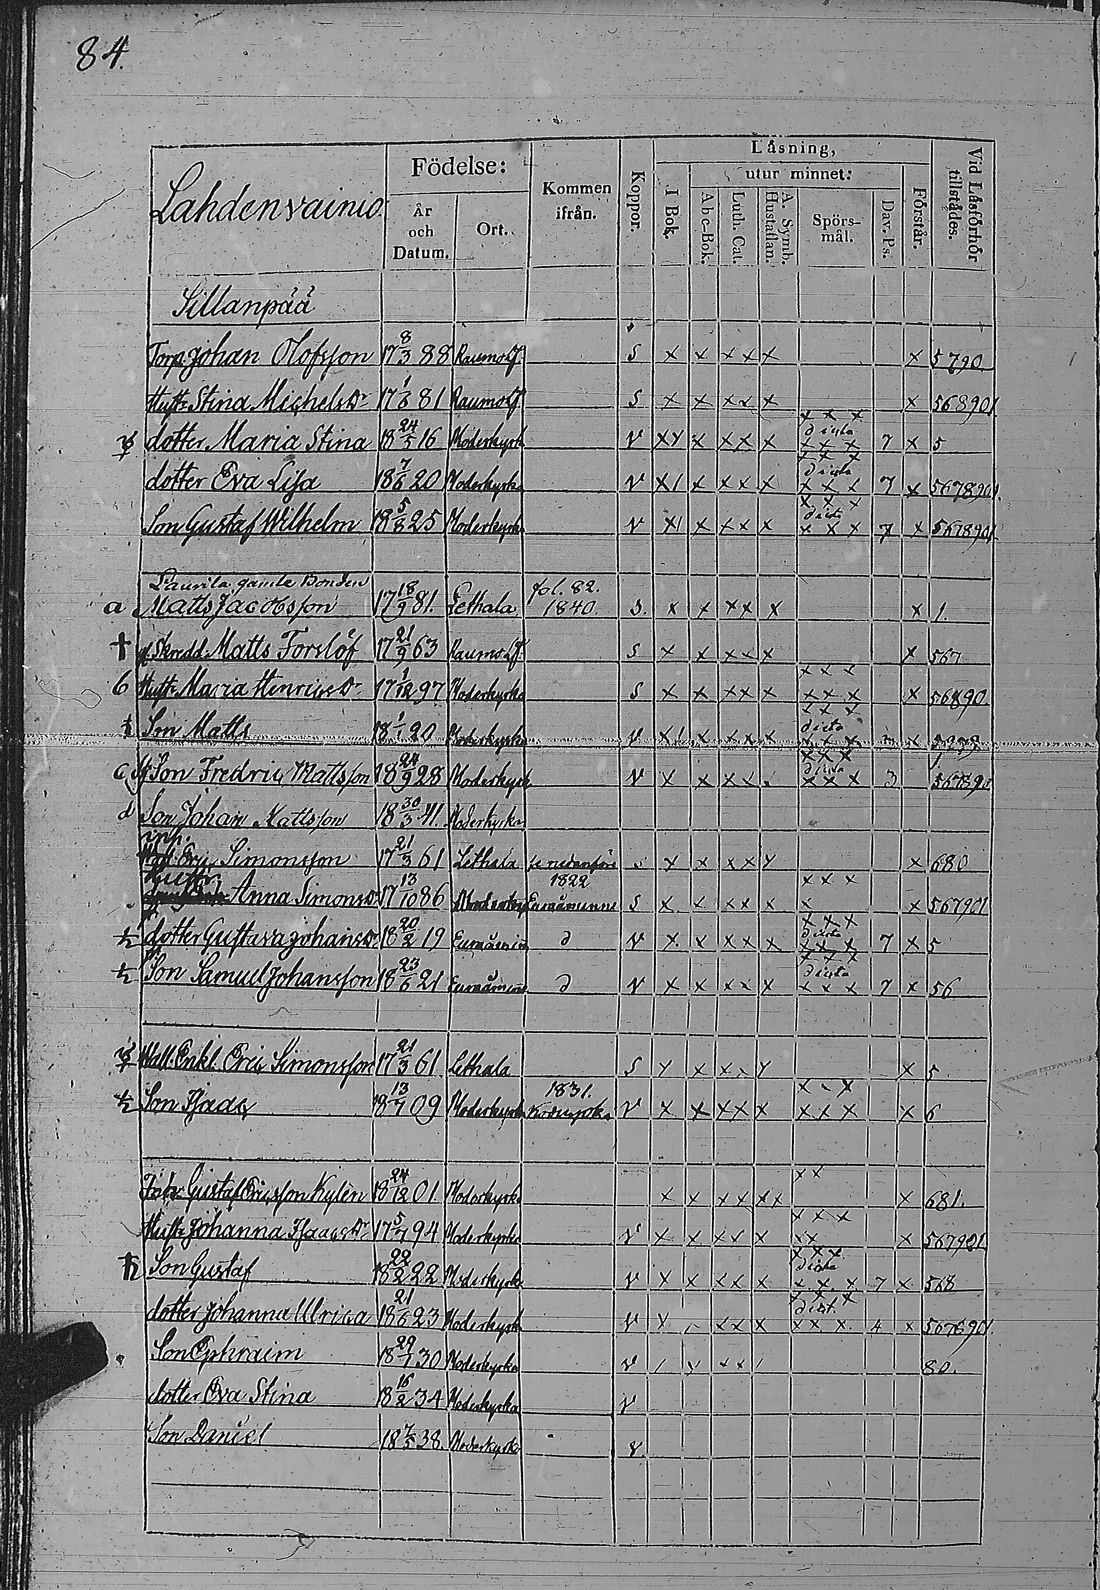 84.
Lahdenvainio.
Födelse:
År och Datum.
Ort.
Kommen ifrån.
Koppor.
Läsning,
I Bok.
utur minnet:
Abc-Bok.
Luth. Cat.
A. Symb. Hustaflan.
Spörs-mål.
Dav. Ps.
Förstår.
Vid Läsförhör tillstådes.
Sillanpää
Torp. Johan Olofsson 17 8/3 88 Raumo S x x x x x x 5790.
Hustr. Stina Michelsdr 17 1/6 81 Raumo S x x x x x x 568901
dotter Maria Stina 18 24/5 16 Moderkyrk V x x x x x x x x x dicto x x x 7 x 5
dotter Eva Lisa 18 7/6 20 Moderkyrka V x x x x x x x x dicto x x x 7 x 5678901
Son Gustaf Wilhelm 18 5/8 25 Moderkyrk V x x x x x x x x dicto x x x 7 x 5678901
Laurila gamle Bonden
a Matts Jacobsson 17 18/9 81. Lethala fol. 82. 1840. S. x x x x x x 1.
† Skredd. Matts Forslöf 17 21/9 63 Raumo S x x x x x x 567
b Hustr. Maria Henricsdr 17 1/12 97 Moderkyrka S x x x x x x x x x x x x 56890.
Son Matts 18 1/1 20 Moderkyrka V x x x x x x x x dicto x x x x
c Son Fredric Mattsson 18 24/9 28 Moderkyrk V x x x x x x x dicto x x x 3 567890
d Son Johan Mattsson 18 30/3 41 Moderkyrka
inh.
Eric Simonsson 17 21/3 61 Lethala se nedanföre S x x x x x x 680
Hustr.
Anna Simonsdr 17 13/10 86 1822 Euraåminne S x x x x x x x x x x 567901
dotter Gustava Johansdr 18 20/2 19 Euraåmin d V x x x x x x x x dicto x x x 7 x 5
Son Samuel Johansson 18 23/6 21 Euraåmin d V x x x x x x x x dicto x x x 7 x 56
Enkl. Eric Simonsson 17 21/3 61 Lethala S x x x x x x 5
Son Isaac 18 13/7 09 Moderkyrka 1831. V x x x x x x x x x x x 6
Gustaf Ericsson Kylén 18 24/12 01 Moderkyrka x x x x x x x x x 681.
Hustr. Johanna Isaacsdr 17 5/7 94 Moderkyrka V x x x x x x x x x x x 567901
Son Gustaf 18 22/2 22 Moderkyrk V x x x x x x x x dicto x x x 7 x 568
dotter Johanna Ulrica 18 21/6 23 Moderkyrk V x x x x x x x dict. x x x 4 x 5678901
Son Ephraim 18 29/1 30 Moderkyrka V 80.
dotter Eva Stina 18 16/2 34 Moderkyrka V
Son Daniel 18 7/5 38 Moderkyrk V.